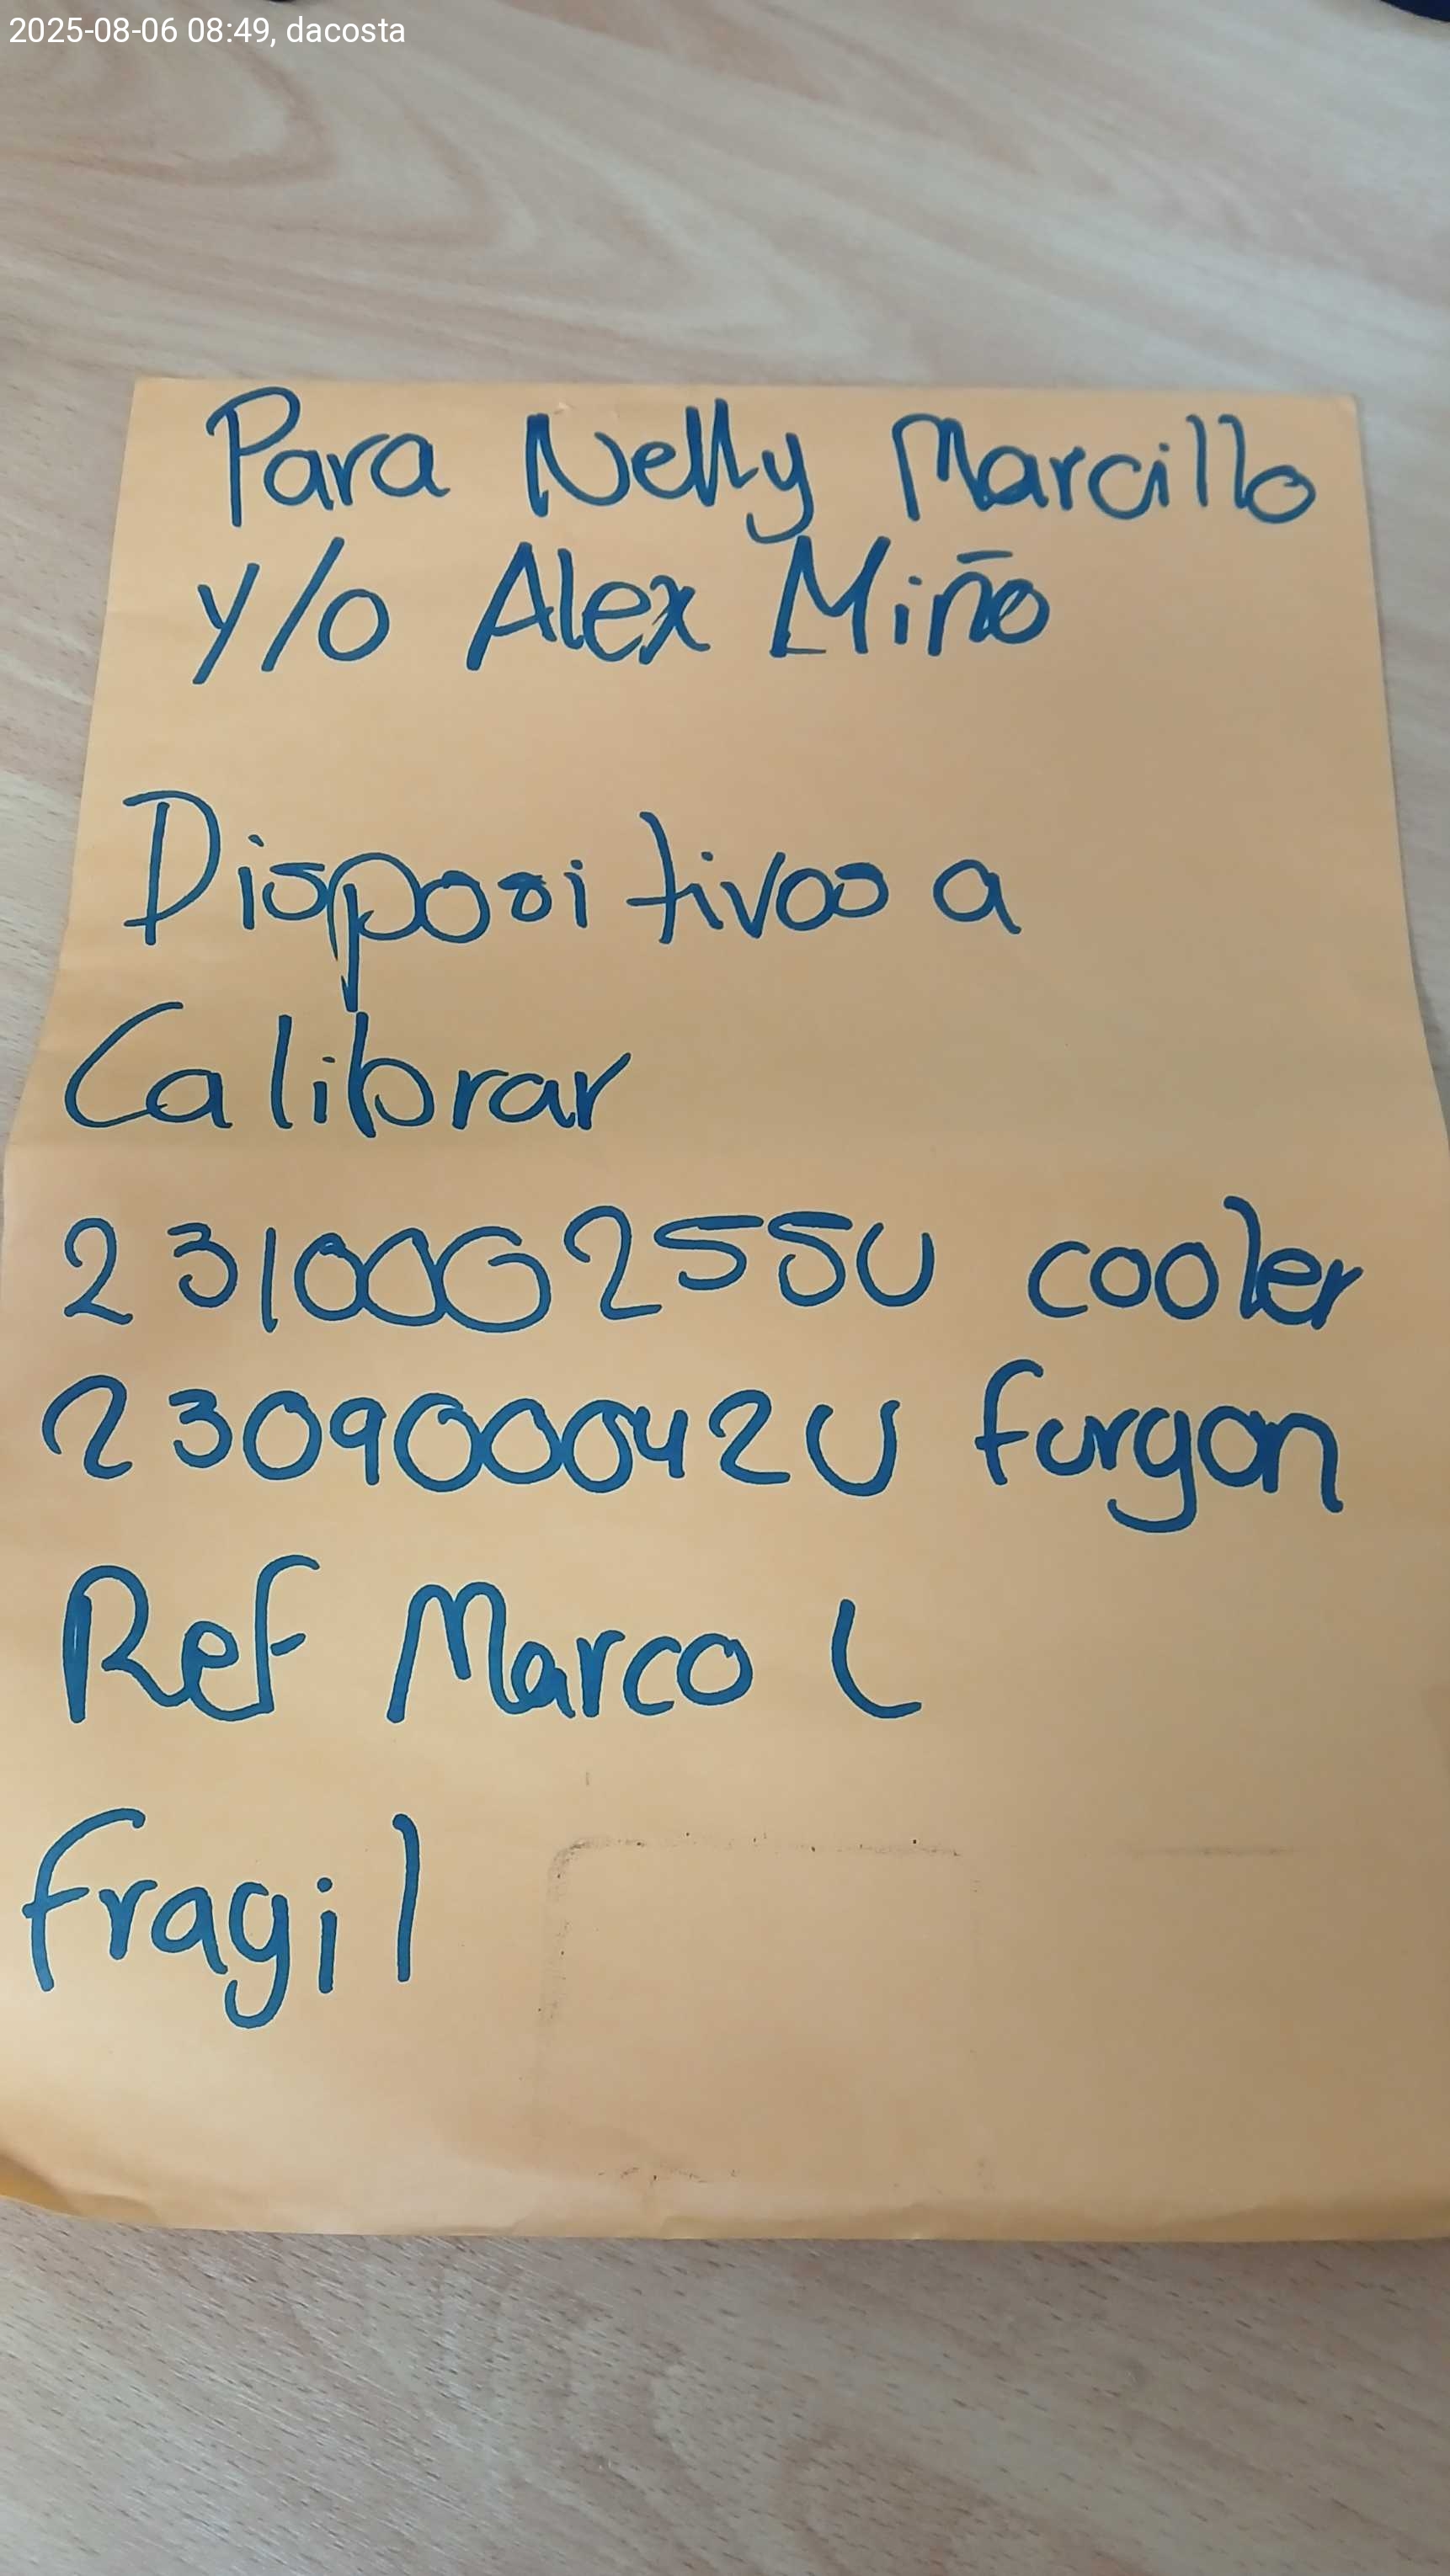 2025-08-06 08:49, dacosta
Para Nelly Marcillo
y/o Alex Miño
Dispositivos a
Calibrar
231000255U cooler
230900042U furgon
Ref Marco L
fragil